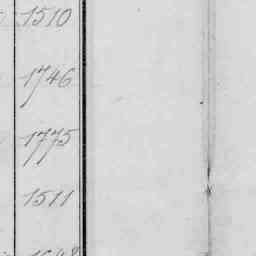 1510
1746
1775
1511